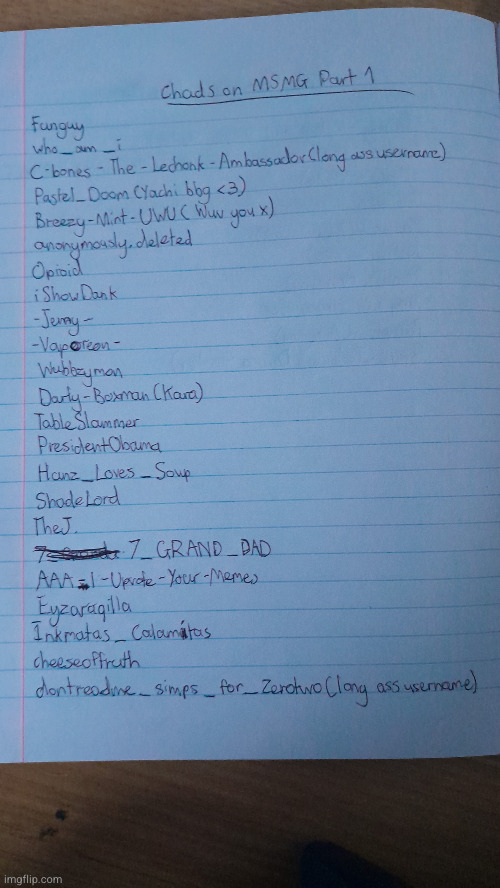 Chads on MSMG Part 1
Funguy
who_am_i
C-bones-The-Lechonk-Ambassador (long ass username)
Pastel_Doom (Yachi bbg <3)
Breezy-Mint-UWU (Wuv you x)
anonymously.deleted
Opioid
iShowDank
-Jemy-
-Vaporeon-
Wubbzymon
Darly-Boxman (Kara)
TableSlammer
PresidentObama
Hanz_Loves_Soup
ShadeLord
TheJ.
7_GRAND_DAD
AAA-I-Upvote-Your-Memes
Eyzaraqilla
Inkmatas_Calamitas
cheeseoftruth
dontreadme_simps_for_Zerotwo (long ass username)
imgflip.com